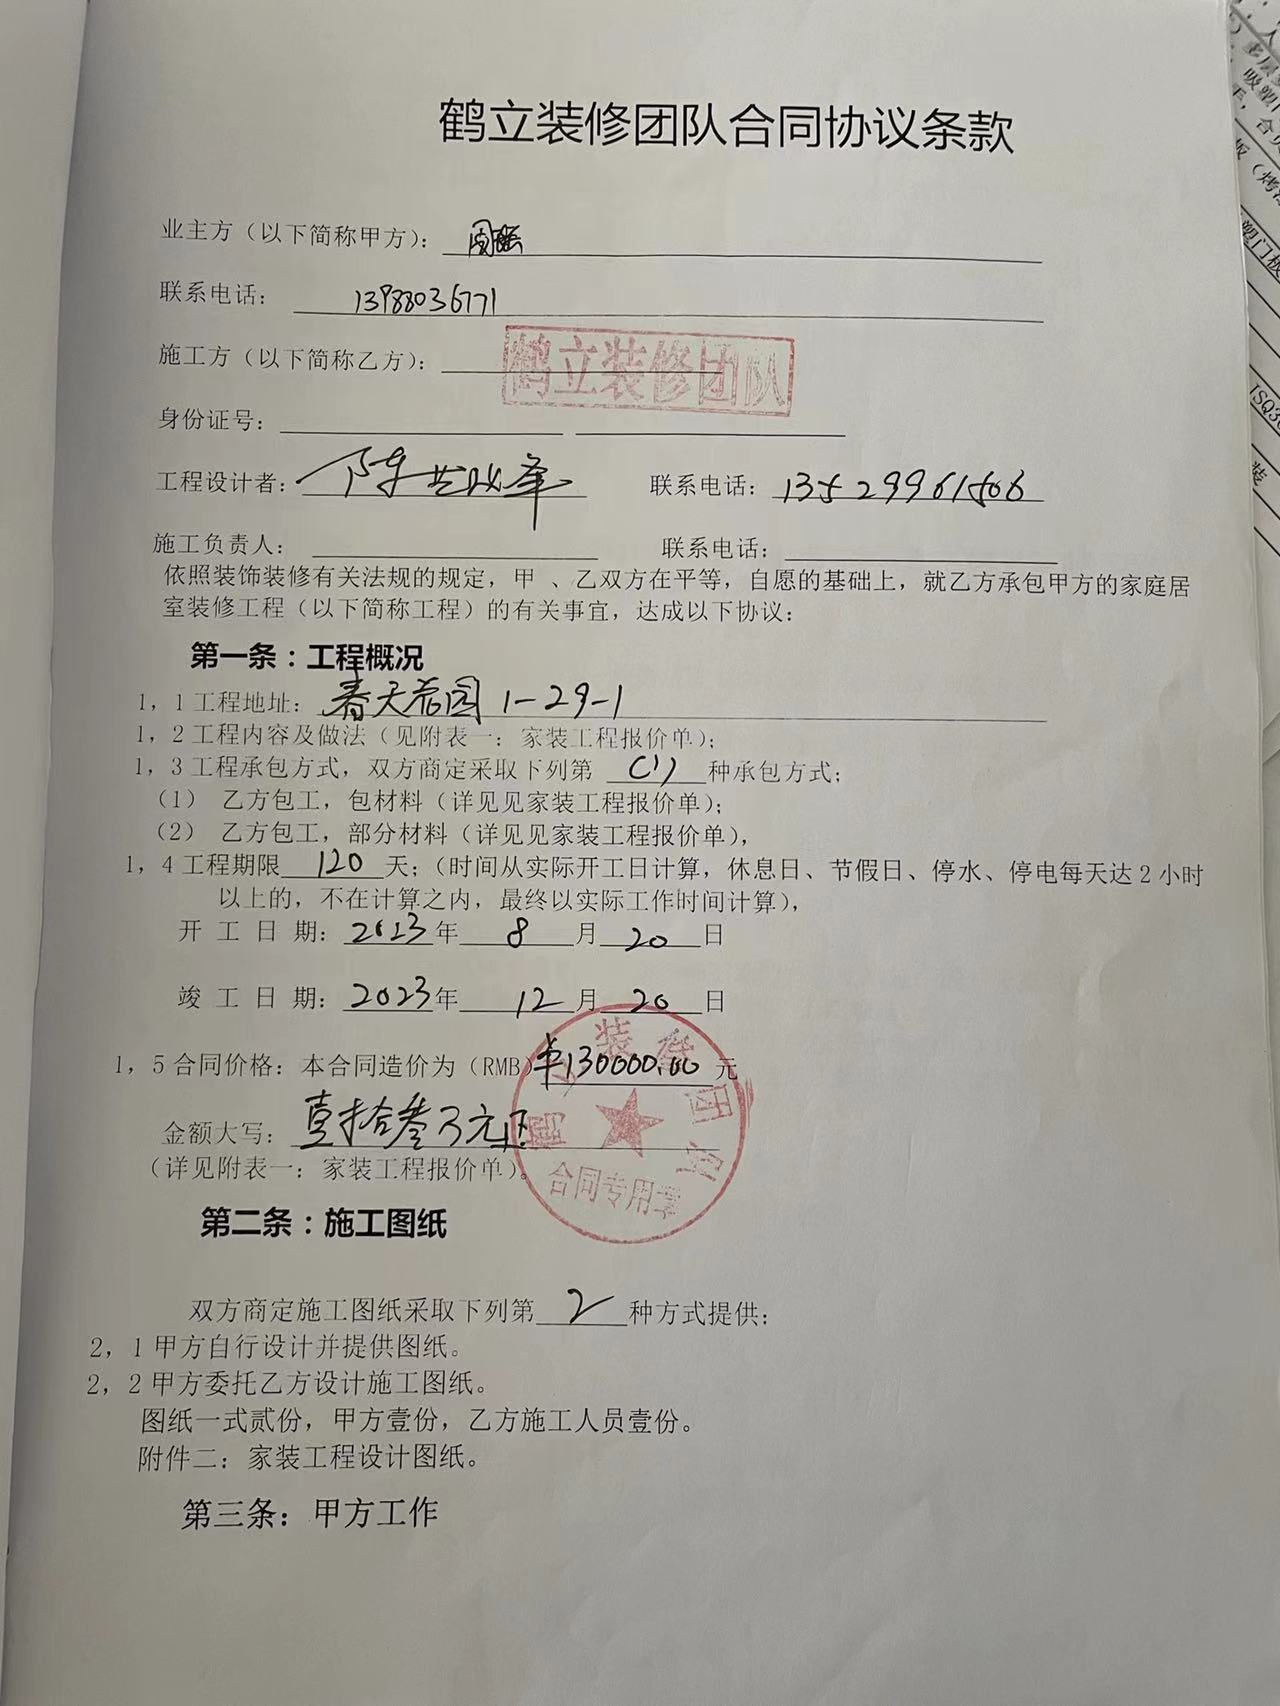 鹤立装修团队合同协议条款
业主方（以下简称甲方）：
联系电话： 13988036771
施工方（以下简称乙方）： 鹤立装修团队
身份证号：
工程设计者： 陈 峰 联系电话：13529961566
施工负责人： 联系电话：
依照装饰装修有关法规的规定，甲 、乙双方在平等，自愿的基础上，就乙方承包甲方的家庭居
室装修工程（以下简称工程）的有关事宜，达成以下协议：
第一条：工程概况
1，1工程地址： 春天花园 1-29-1
1，2工程内容及做法（见附表一：家装工程报价单）；
1，3工程承包方式，双方商定采取下列第 （1） 种承包方式；
（1） 乙方包工，包材料（详见见家装工程报价单）；
（2） 乙方包工，部分材料（详见见家装工程报价单），
1，4工程期限 120 天；（时间从实际开工日计算，休息日、节假日、停水、停电每天达2小时
以上的，不在计算之内，最终以实际工作时间计算），
开 工 日 期： 2023年 8 月 20 日
竣 工 日 期： 2023年 12 月 20 日
1，5合同价格：本合同造价为（RMB）¥130000.00 元
金额大写： 壹拾叁万元正
（详见附表一：家装工程报价单）。
鹤立装修团队
合同专用章
第二条：施工图纸
双方商定施工图纸采取下列第 2 种方式提供；
2，1甲方自行设计并提供图纸。
2，2甲方委托乙方设计施工图纸。
图纸一式贰份，甲方壹份，乙方施工人员壹份。
附件二：家装工程设计图纸。
第三条：甲方工作